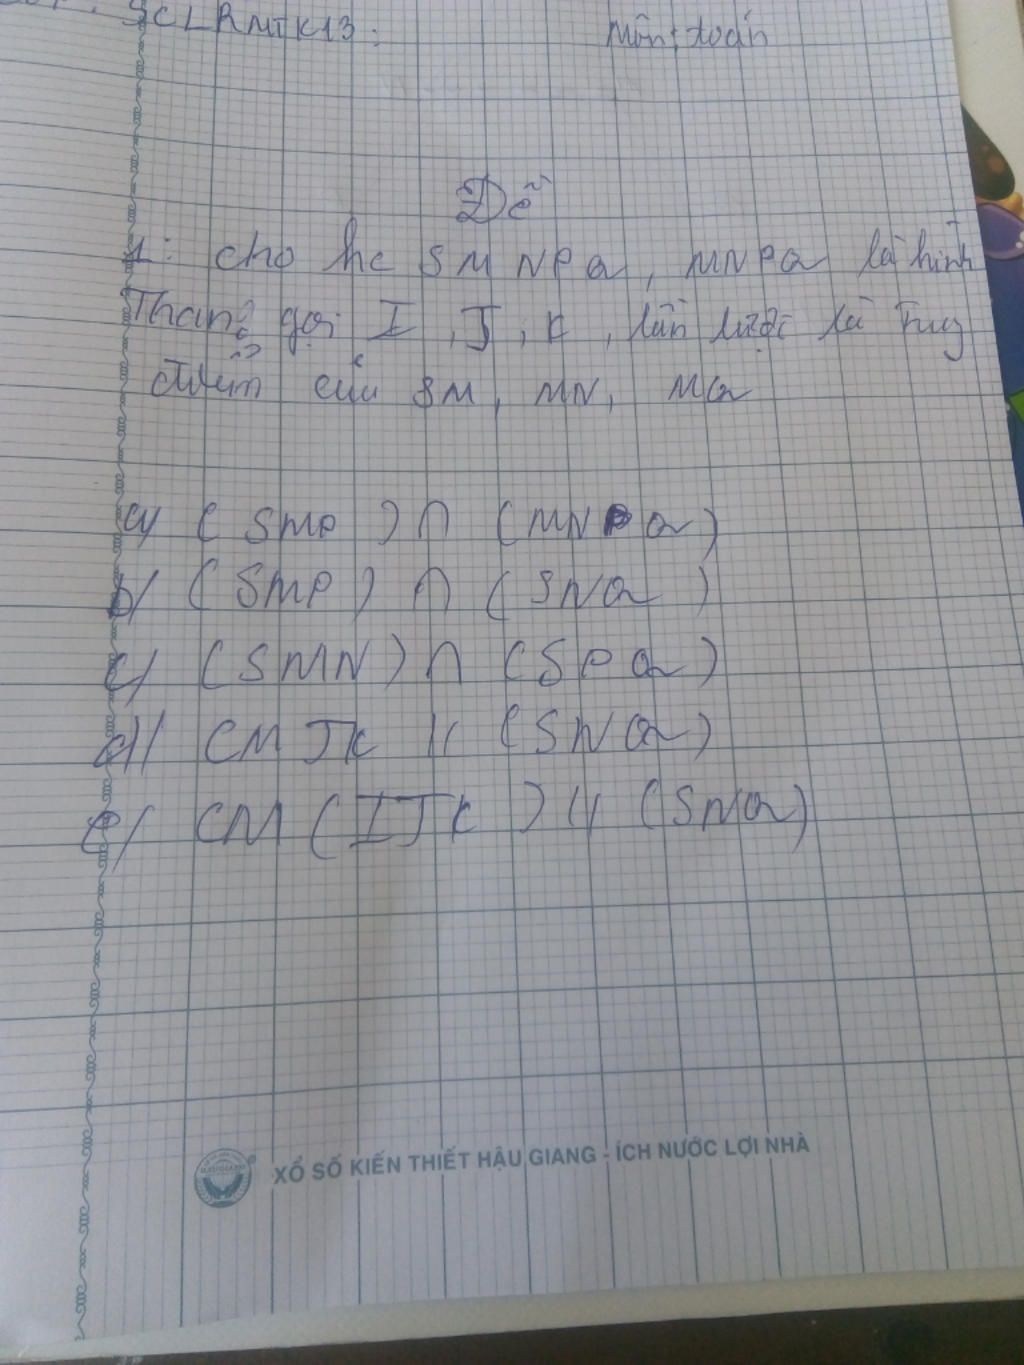 SCLRMTK13: Môn: toán
Đề
1: cho hc SMNPQ, MNPQ là hình
Thang gọi I, J, K, lần lược là Trug
điểm của SM, MN, MQ
a/ (SMP) ∩ (MNPQ)
b/ (SMP) ∩ (SNQ)
c/ (SMN) ∩ (SPQ)
d/ CM JK // (SNQ)
e/ CM (IJK) // (SNQ)
XỔ SỐ KIẾN THIẾT HẬU GIANG - ÍCH NƯỚC LỢI NHÀ